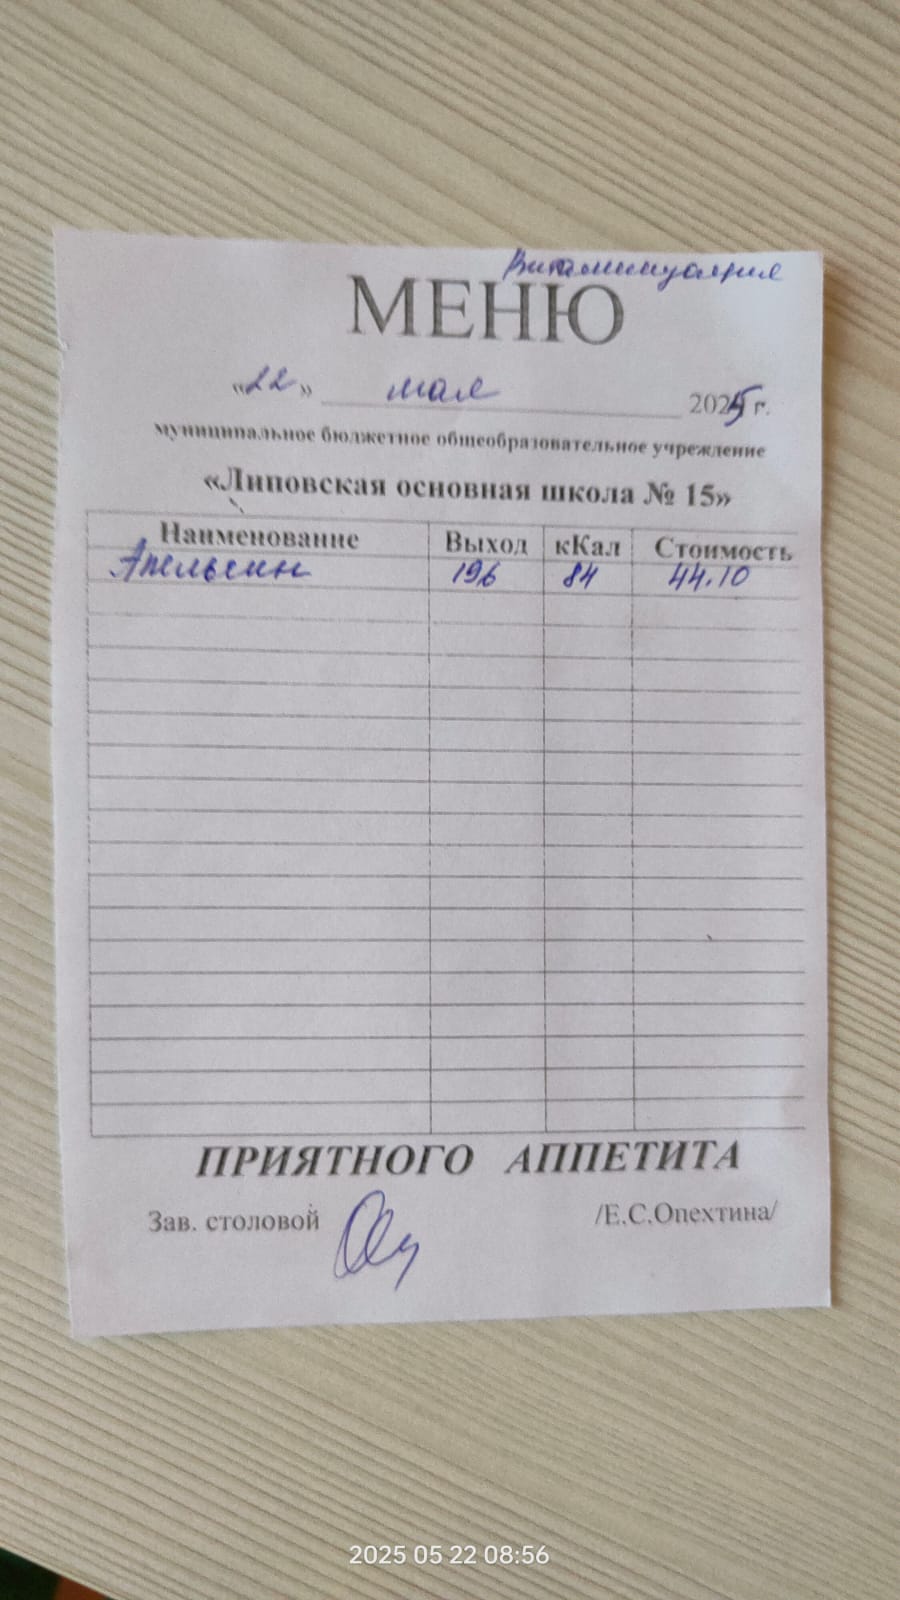 Витаминизация
МЕНЮ
«22» мая 2025 г.
муниципальное бюджетное общеобразовательное учреждение
«Липовская основная школа № 15»
Наименование Выход кКал Стоимость
Апельсин 196 84 44.10
ПРИЯТНОГО АППЕТИТА
Зав. столовой /Е.С.Опехтина/
2025 05 22 08:56